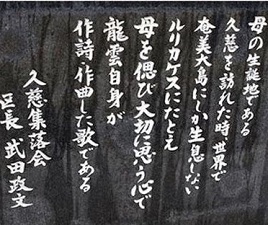 母の生誕地である
久慈を訪れた時世界で
奄美大島にしか生息しない
ルリカケスにたとえ
母を偲び大切に思う心で
龍雲自身が
作詩・作曲した歌である
久慈集落会
区長 武田政文